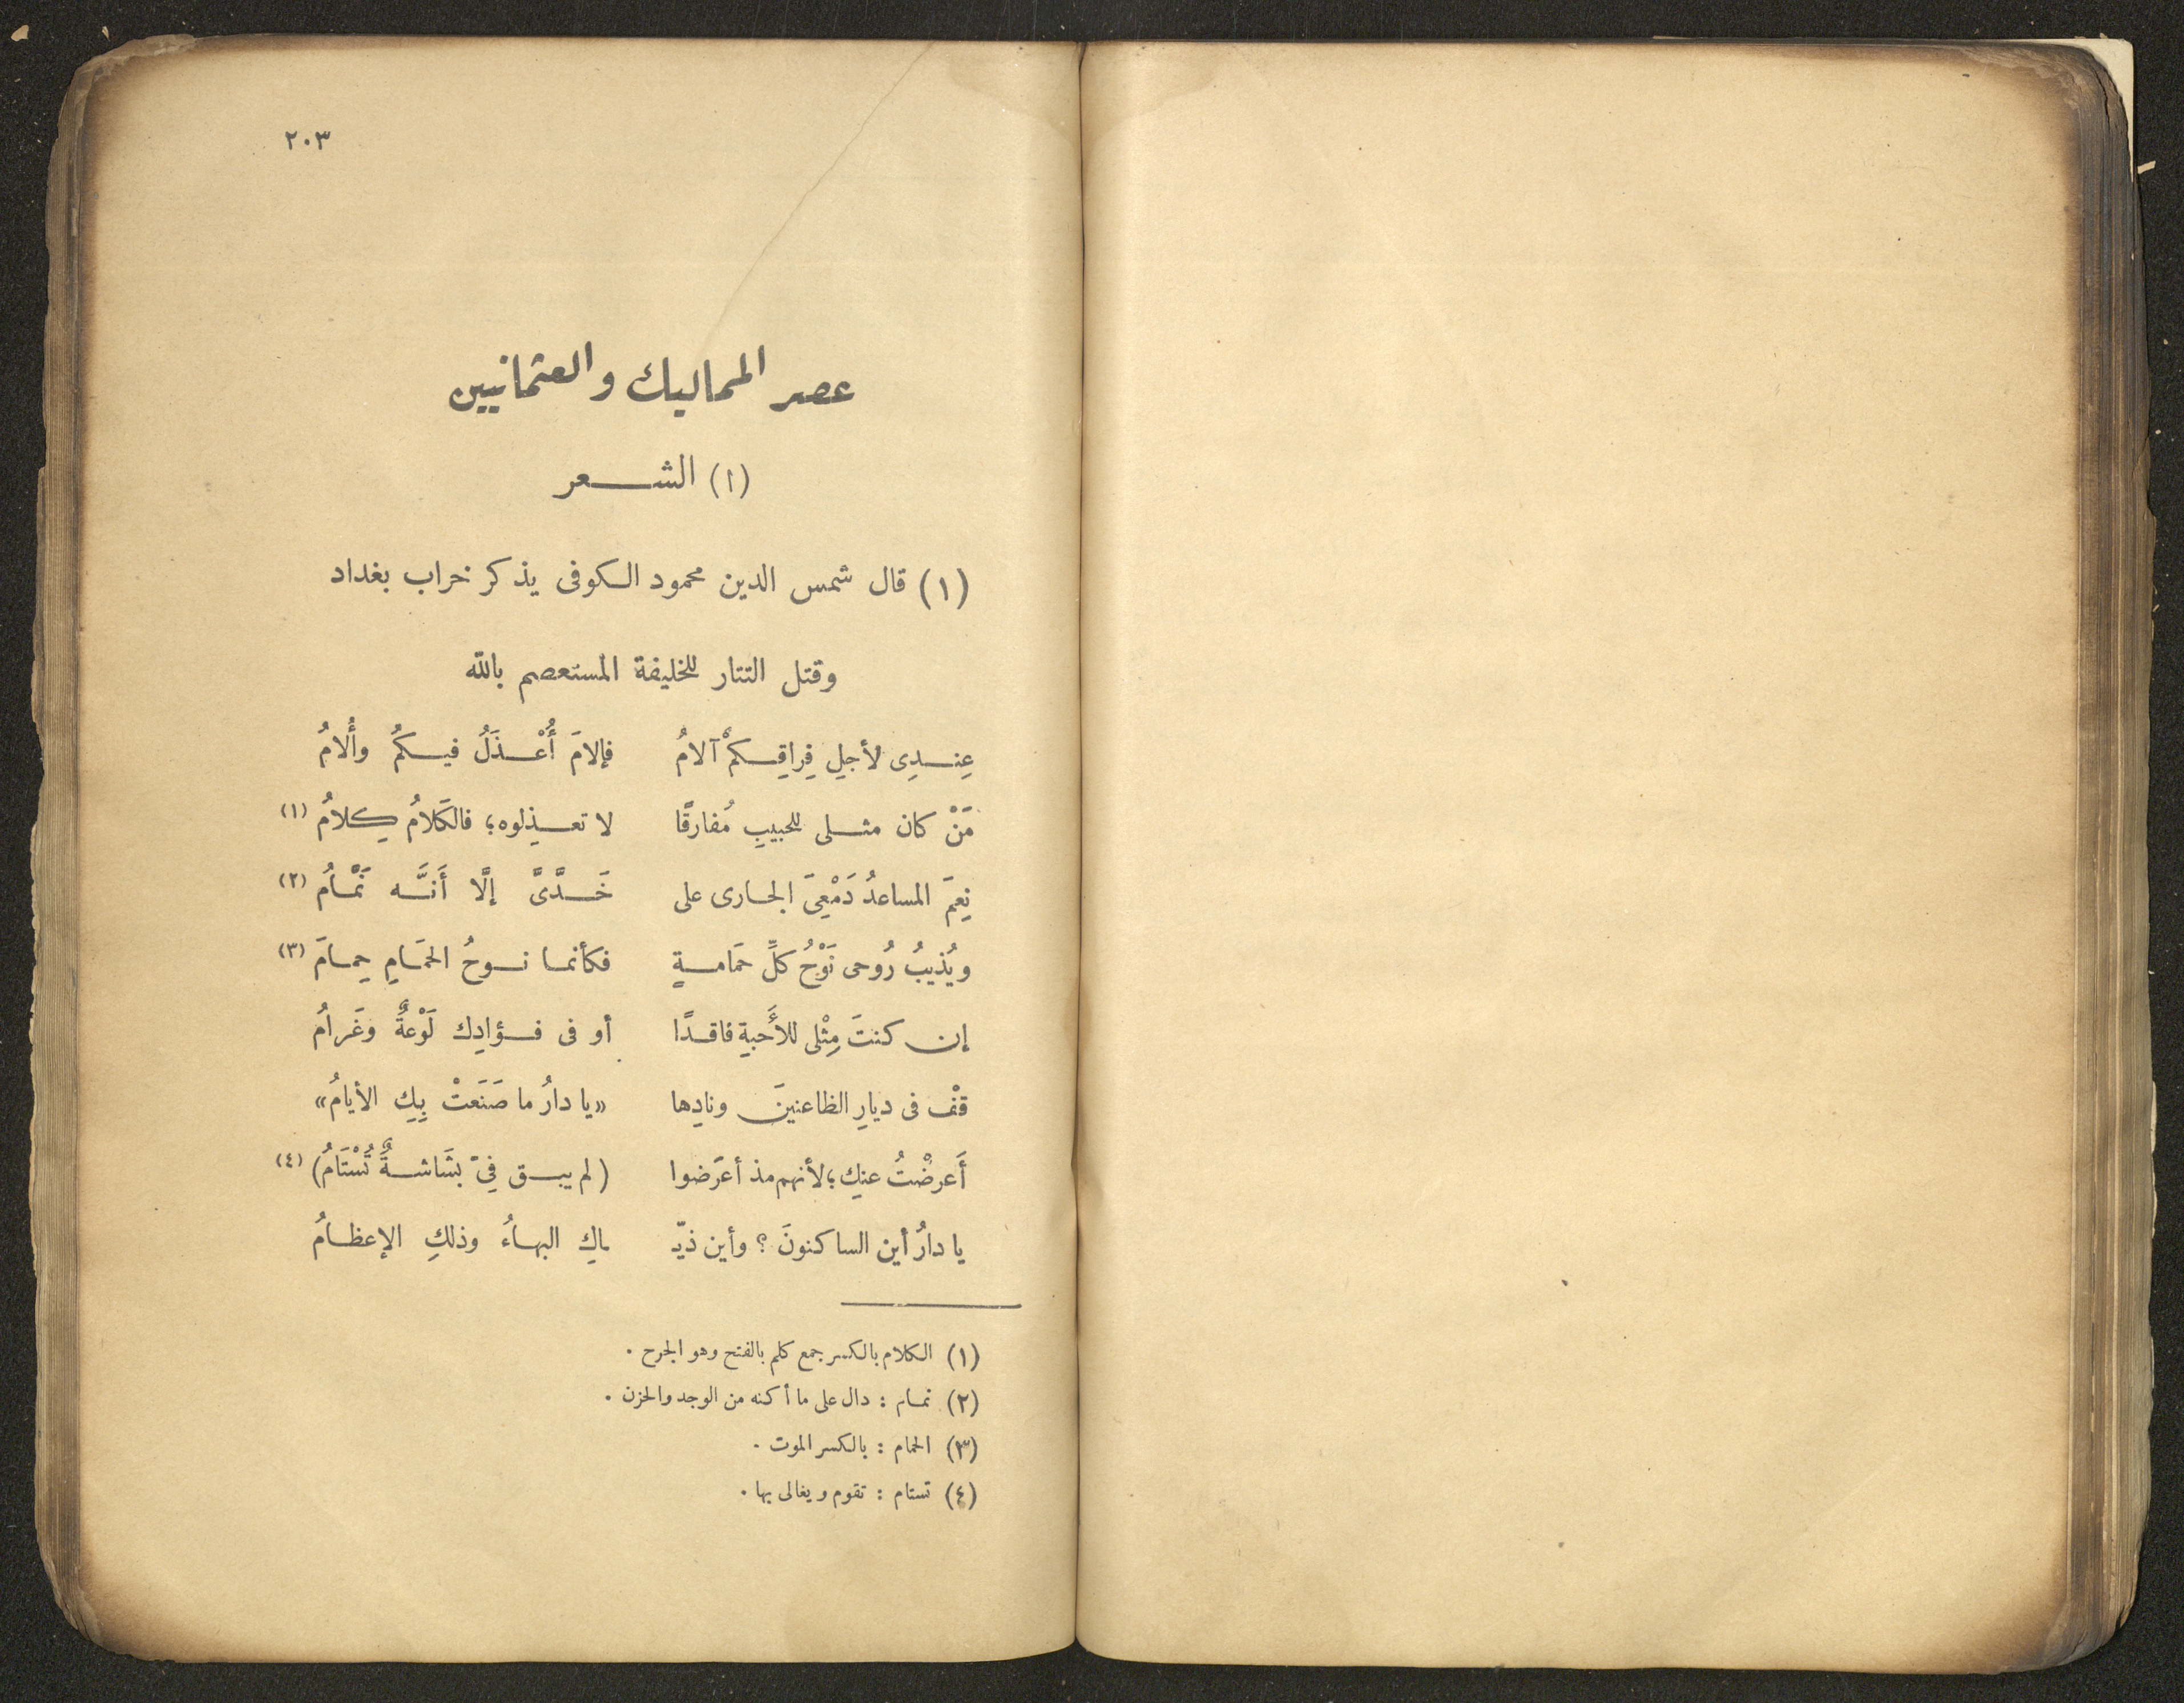 ٢٠٣
عصر المماليك والعثمانيين
(١) الشعر
(١) قال شمس الدين محمود الكوفى يذكر خراب بغداد
وقتل التتار للخليفة المستعصم بالله
عِندِى لأجلِ فِراقِكمْ آلامُ فإلامَ أُعْذَلُ فيكمُ وأُلامُ
مَنْ كان مثلى للحبيبِ مُفارقًا لا تعذِلوه؛ فالكَلامُ كِلامُ (١)
نِعمَ المساعدُ دَمْعِىَ الجارى على خَدَّىَّ إلَّا أَنَّه نَمَّامُ (٢)
ويُذيبُ رُوحى نَوْحُ كلِّ حَمَامةٍ فكأنما نوحُ الحَمَامِ حِمامَ (٣)
إن كنتَ مِثْلى للأَحبةِ فاقدًا أو فى فؤادِك لَوْعةٌ وغَرامُ
قفْ فى ديارِ الظاعنينَ ونادِها «يا دارُ ما صَنَعتْ بِكِ الأيامُ»
أَعرضْتُ عنكِ؛ لأنهم مذ أعرَضوا (لم يبق فِىَّ بشَاشةٌ تُسْتَامُ) (٤)
يا دارُ أين الساكنونَ ؟ وأين ذيّـ ـاكِ البهاءُ وذلكِ الإعظامُ
(١) الكلام بالكسر جمع كلم بالفتح وهو الجرح .
(٢) نمام : دال على ما أكنه من الوجد والحزن .
(٣) الحمام : بالكسر الموت .
(٤) تستام : تقوم ويغالى بها .